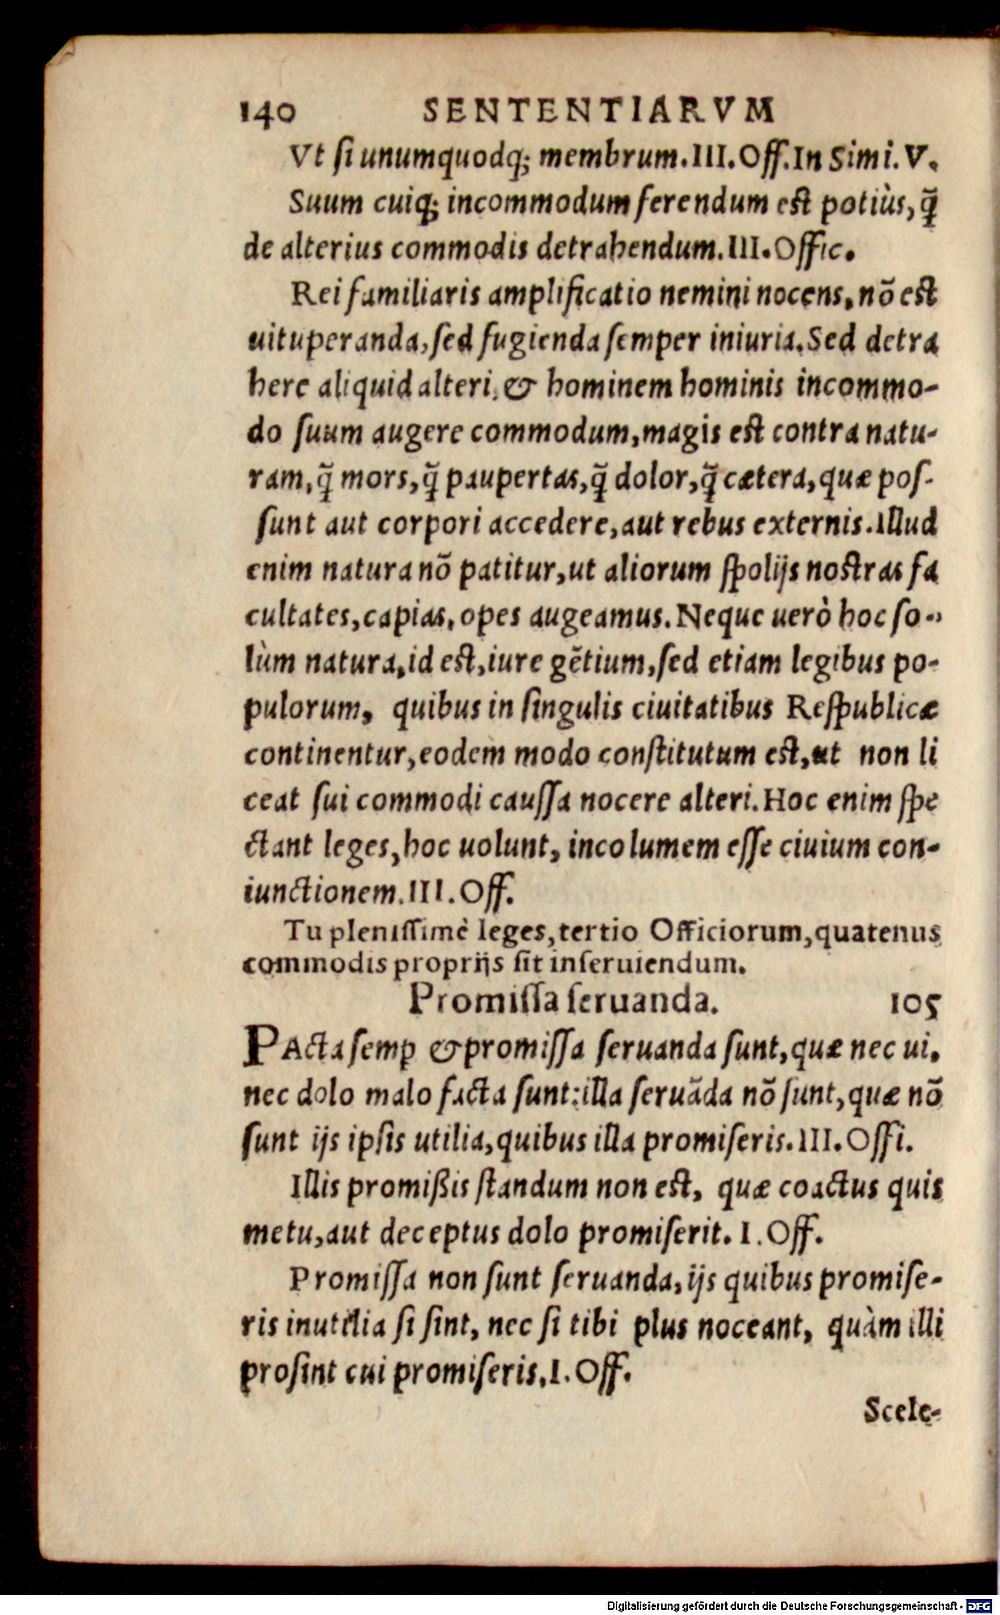 140 SENTENTIARVM
Vt ſi unumquodq; membrum.III.Off.In Simi.V.
Suum cuiq; incommodum ferendum est potiùs, q̃
de alterius commodis detrahendum.III.Offic.
Rei familiaris amplificatio nemini nocens, nõ est
uituperanda, ſed fugienda ſemper iniuria. Sed detra
here aliquid alteri, & hominem hominis incommo-
do ſuum augere commodum, magis est contra natu-
ram, q̃ mors, q̃ paupertas, q̃ dolor, q̃ cætera, quæ poſ-
ſunt aut corpori accedere, aut rebus externis. Illud
enim natura nõ patitur, ut aliorum ſpolijs nostras fa
cultates, capias, opes augeamus. Neque uerò hoc ſo-
lùm natura, id est, iure gẽtium, ſed etiam legibus po-
pulorum, quibus in ſingulis ciuitatibus Reſpublicæ
continentur, eodem modo conſtitutum est, ut non li
ceat ſui commodi cauſſa nocere alteri. Hoc enim ſpe
ctant leges, hoc uolunt, incolumem eſſe ciuium con-
iunctionem.III.Off.
Tu pleniſſimè leges, tertio Officiorum, quatenus
commodis proprijs ſit inſeruiendum.
Promiſſa ſeruanda. 105
PActa ſemꝑ & promiſſa ſeruanda ſunt, quæ nec ui,
nec dolo malo facta ſunt: illa ſeruãda nõ ſunt, quæ nõ
ſunt ijs ipſis utilia, quibus illa promiſeris.III.Offi.
Illis promißis ſtandum non est, quæ coactus quis
metu, aut deceptus dolo promiſerit. I.Off.
Promiſſa non ſunt ſeruanda, ijs quibus promiſe-
ris inutilia ſi ſint, nec ſi tibi plus noceant, quàm illi
proſint cui promiſeris.I.Off.
Scele-
Digitalisierung gefördert durch die Deutsche Forschungsgemeinschaft - DFG